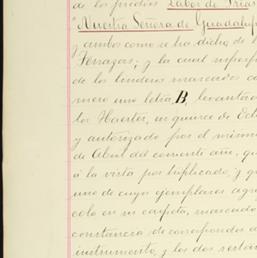 de los predios Labor de Trias
"Nuestra Señora de Guadalup
y ambos como se ha dicho de l
Terrazas; y la cual superf
de los linderos marcados c
mero uno letra B, levantado
los Haerter, en quince de Oct
y autorizado por el mismo
de Abril del corriente año, qu
á la vista por triplicado, y q
uno de cuyos ejemplares agre
colo en su carpeta, marcado
constancia de corresponder á
instrumento, y los dos restan